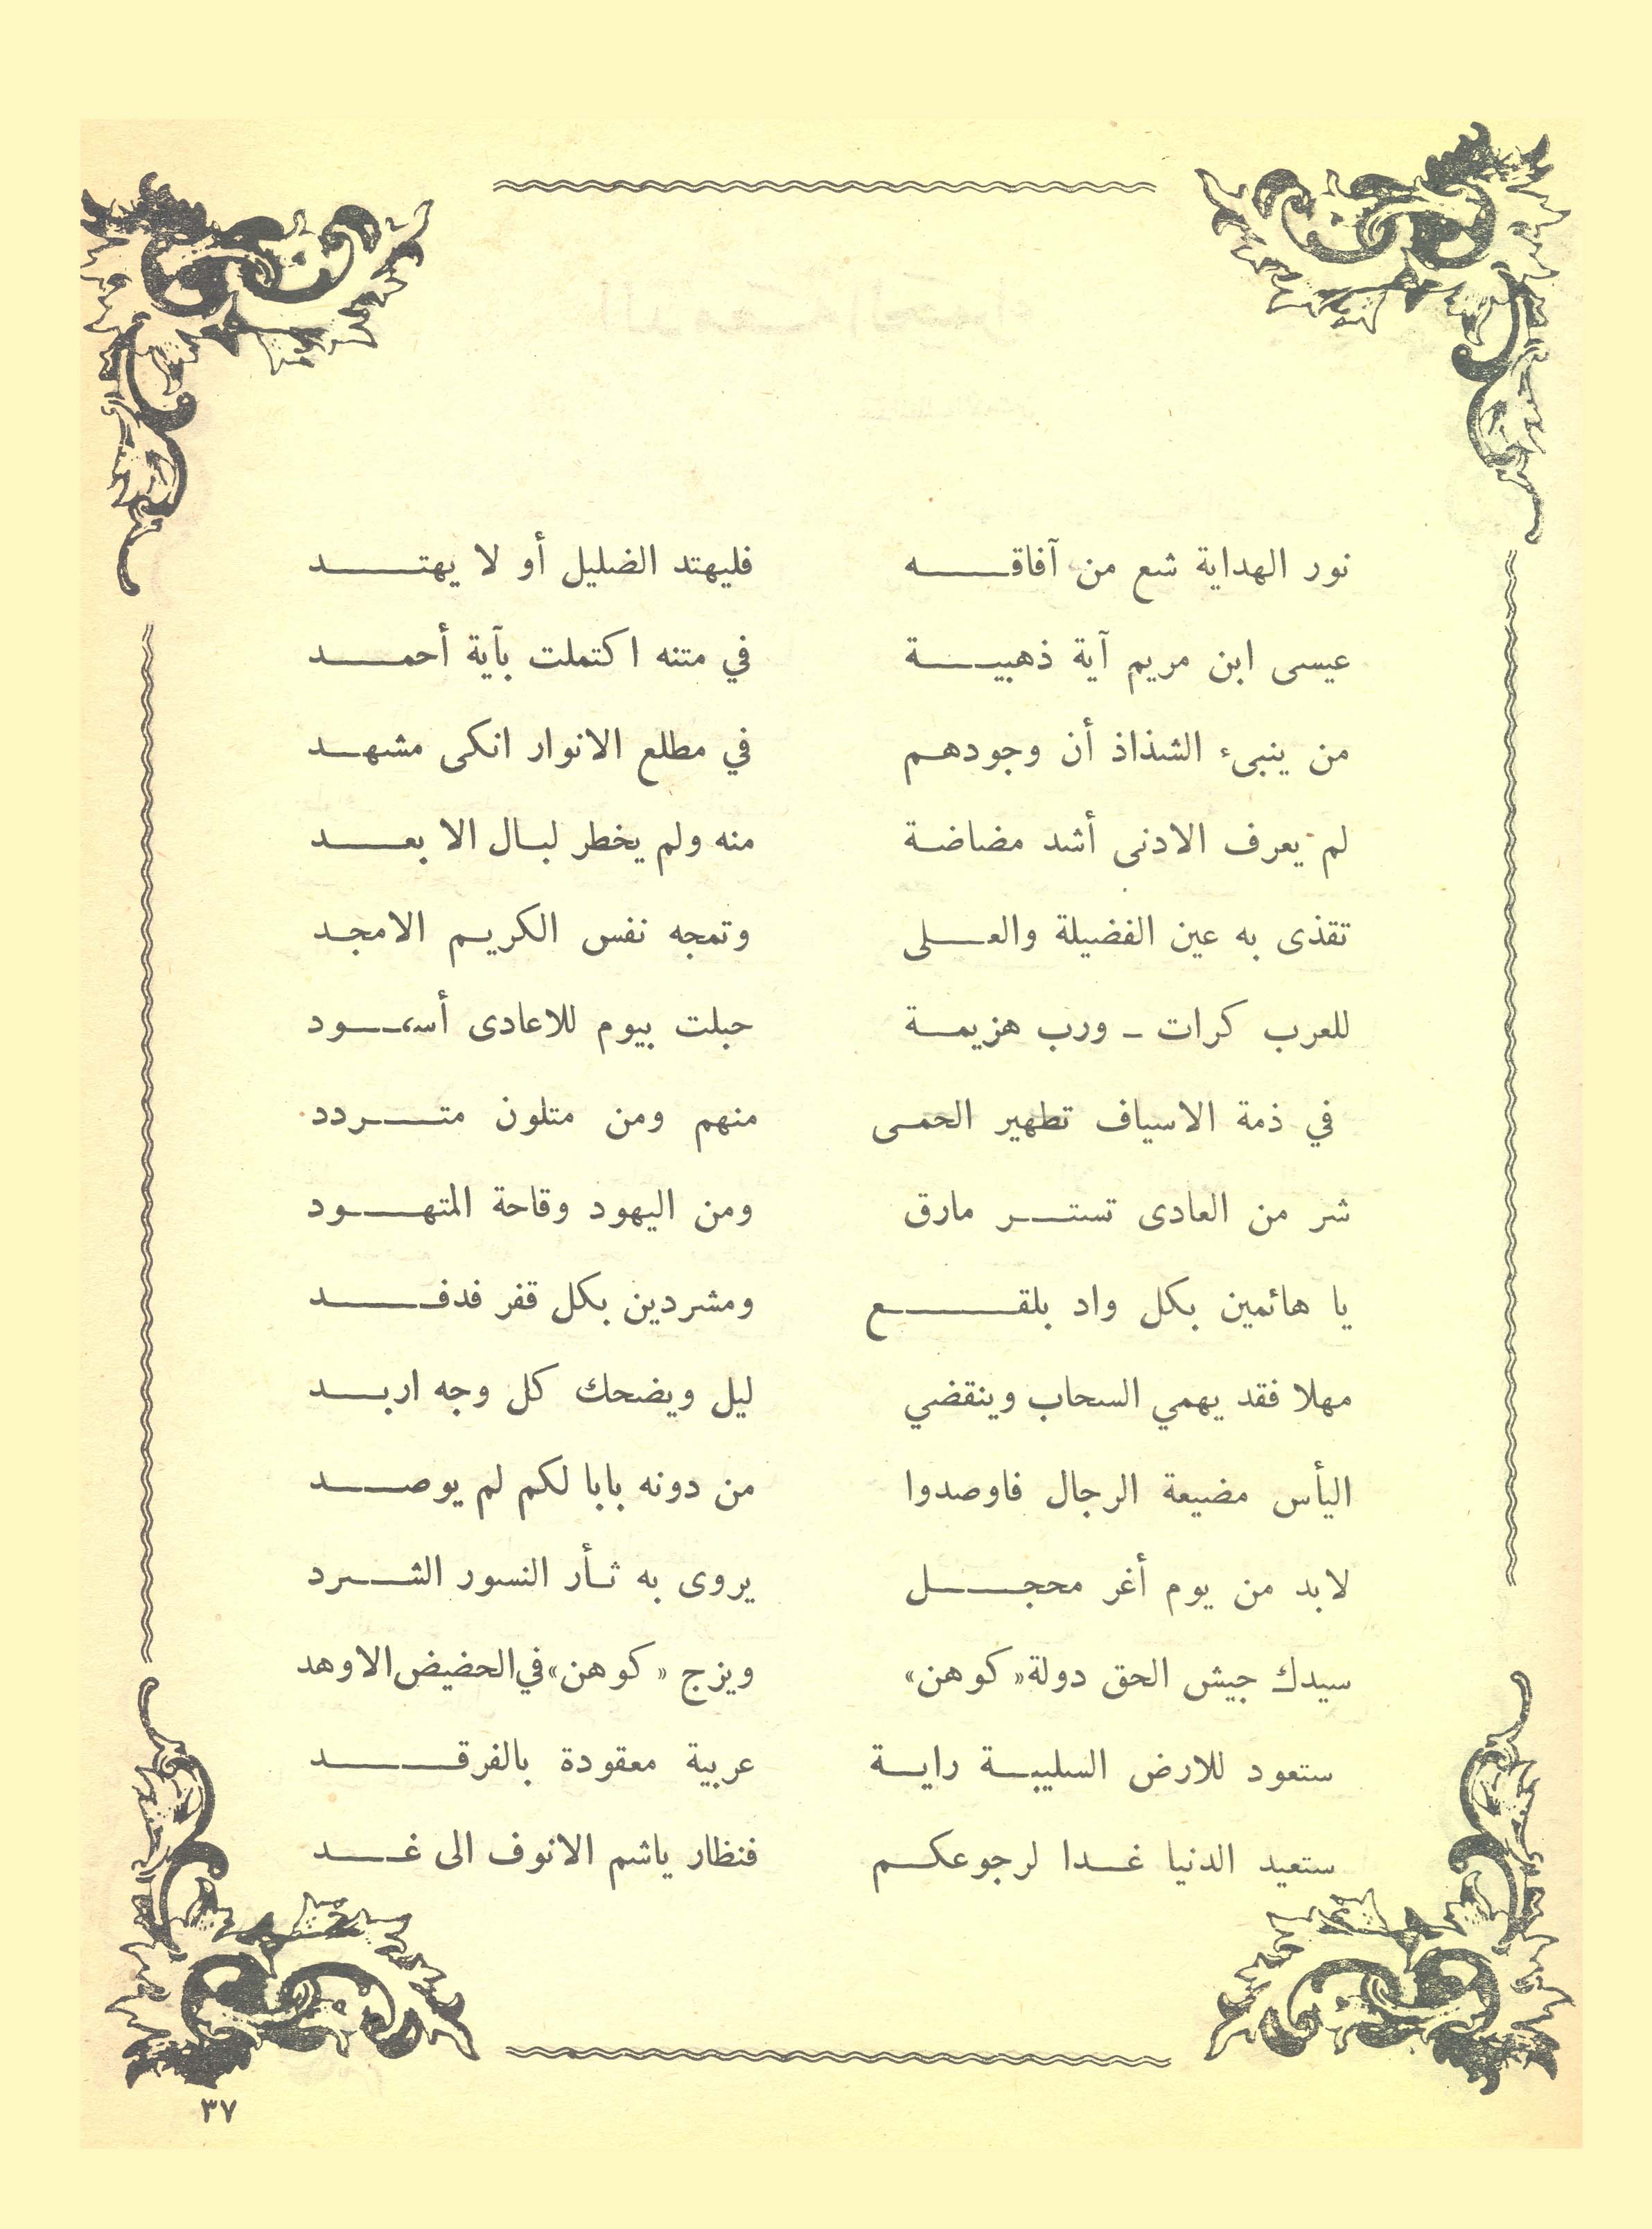 نور الهداية شع من آفاقه فليهتد الضليل أو لا يهتد
عيسى ابن مريم آية ذهبية في متنه اكتملت بآية أحمد
من ينبىء الشذاذ أن وجودهم في مطلع الانوار انكى مشهد
لم يعرف الادنى أشد مضاضة منه ولم يخطر لبال الا بعد
تقذى به عين الفضيلة والعلى وتمجه نفس الكريم الامجد
للعرب كرات - ورب هزيمة حبلت بيوم للاعادى أسود
في ذمة الاسياف تطهير الحمى منهم ومن متلون متردد
شر من العادى تستر مارق ومن اليهود وقاحة المتهود
يا هائمين بكل واد بلقع ومشردين بكل قفر فدفد
مهلا فقد يهمي السحاب وينقضي ليل ويضحك كل وجه اربد
اليأس مضيعة الرجال فاوصدوا من دونه بابا لكم لم يوصد
لابد من يوم أغر محجل يروى به ثأر النسور الشرد
سيدك جيش الحق دولة « كوهن» ويزج « كوهن» في الحضيض الاوهد
ستعود للارض السليبة راية عربية معقودة بالفرقد
ستعيد الدنيا غدا لرجوعكم فنظار ياشم الانوف الى غد
٣٧